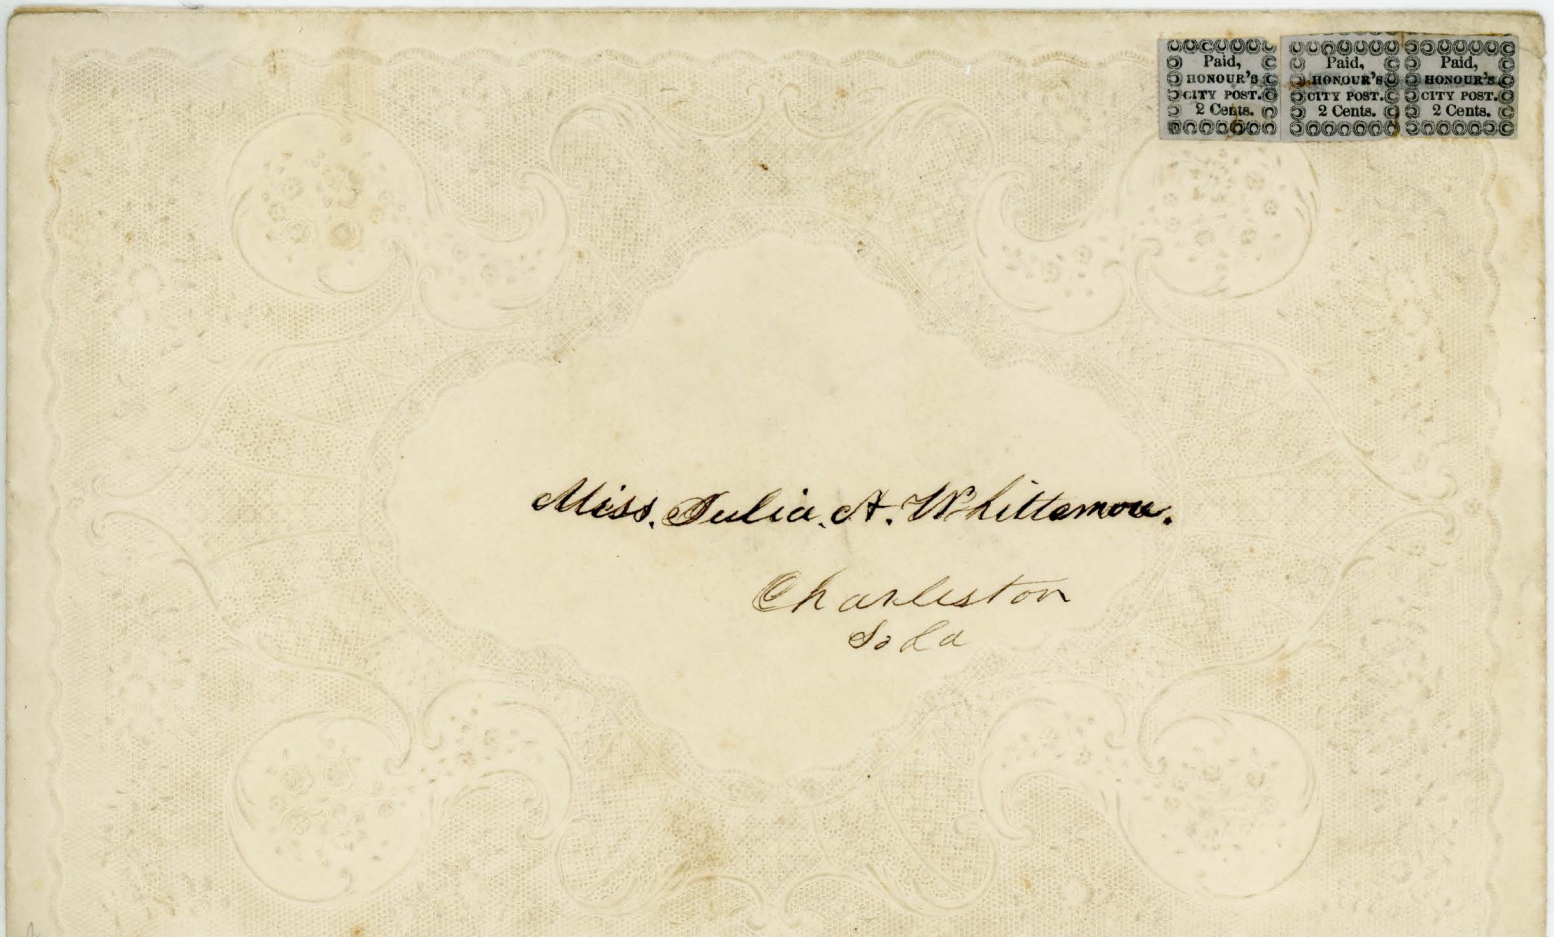 Paid,
HONOUR'S
CITY POST.
2 Cents.
Paid,
HONOUR'S
CITY POST.
2 Cents.
Paid,
HONOUR'S
CITY POST.
2 Cents.
Miss. Julia. A. Whittemore.
Charleston
So Ca